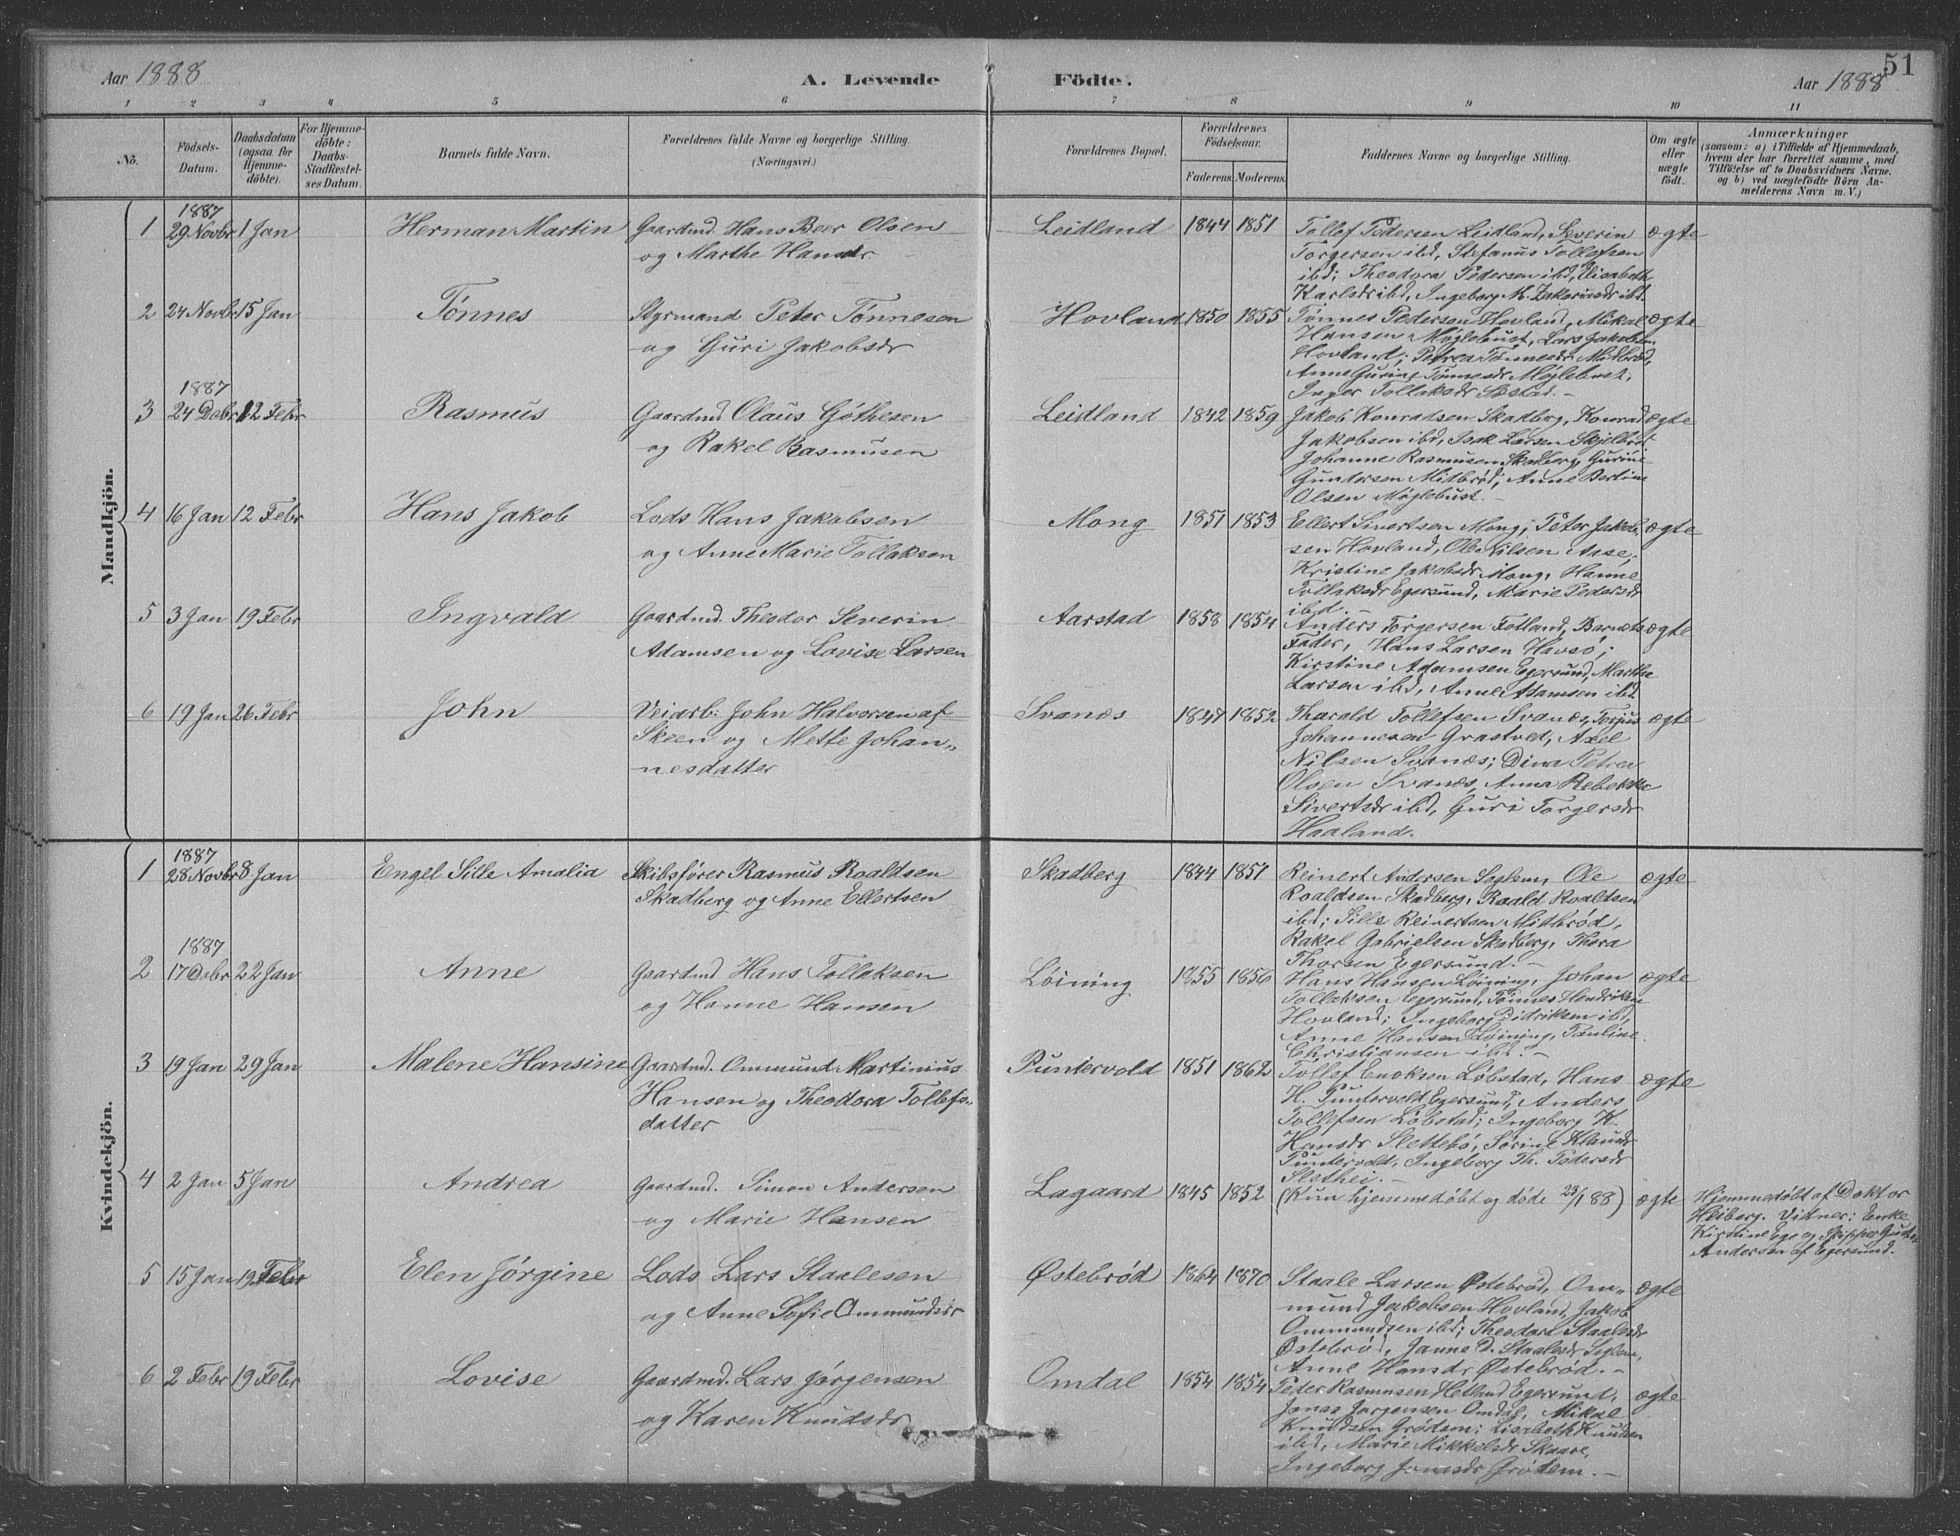 Aar 1888
A. Levende Födte.
51
Aar 1888
1 2 3 4 5 6 7 8 9 10 11
No.
Födsels-Datum.
Daabsdatum (ogsaa for Hjemme-döbte).
For Hjemme-döbte: Daabs-Stadfæstel-ses Datum.
Barnets fulde Navn.
Forældrenes fulde Navne og borgerlige Stilling. (Næringsvei.)
Forældrenes Bopæl.
Forældrenes Födselsaar.
Faderens. Moderens.
Faddernes Navne og borgerlige Stilling.
Om ægte eller uægte födt.
Anmærkninger
(saasom: a) i Tilfælde af Hjemmedaab,
hvem der har forrettet samme, med
Tilföielse af to Daabsvidners Navne.
og b) ved uægtefödte Börn An-
melderens Navn m. V.)
Mandkjön.
1 1887 29 Novbr 1 Jan Herman Martin Gaardmd. Hans Beer Olsen
og Marthe Hansdr
Leidland 1844 1851 Tollef Pedersen Leidland, Severin
Torgersen ibd, Stefanus Tollefsen
ibd; Theodora Pedersen ibd, Elisabeth
Karlsdr ibd, Ingeborg M. Zakariasdr ibd.
ægte
2 24 Novbr 15 Jan Tönnes Styrmand Peter Tönnesen
og Guri Jakobsdr
Hovland 1850 1855 Tönnes Pedersen Hovland, Mikal
Hansen Möglebust, Lars Jakobsen
Hovland; Petrea Tönnesdr Midbröd,
Anne Gurine Tönnesdr Möglebust,
Inger Tollaksdr
ægte
3 1887 24 Debr 12 Febr Rasmus Gaardmd. Olaus Göthesen
og Rakel Rasmusen
Leidland 1842 1859 Jakob Konradsen Skadberg, Konrad
Jakobsen ibd, Isak Larsen Skjelbred
Johanne Rasmusen Skadberg, Gurine
Gundersen Mitbröd, Anne Bertine
Olsen Möglebust.
ægte
4 16 Jan 12 Febr Hans Jakob Lods Hans Jakobsen
og Anne Marie Tollaksen
Mong 1851 1853 Ellert Sivertsen Mong; Peter Jakob-
sen Hovland, Ole Nilsen Aase;
Kristine Jakobsdr Mong, Hanne
Tollaksdr Egersund, Marie Pedersdr
ibd.
ægte
5 3 Jan 19 Febr Ingvald Gaardmd. Theodor Severin
Adamsen og Lovise Larsen
Aarstad 1858 1854 Anders Torgersen Fotland, Barnets
Fader, Hans Larsen Havsö;
Kirstine Adamsen Egersund, Marthe
Larsen ibd, Anne Adamsen ibd
ægte
6 19 Jan 26 Febr John Veiarb: John Halvorsen af
Skeen og Mette Johan-
nesdatter
Svanæs 1847 1852 Tharald Tollefsen Svanæs, Torjus
Johannesen Grastved, Axel
Nilsen Svanæs; Dina Petrea
Olsen Svanæs, Anna Rebekka
Sivertsdr ibd, Guri Torgersdr
Haaland.
ægte
Kvindekjön.
1 1887 28 Novbr 8 Jan Engel Sille Amalia Skibsförer Rasmus Roaldsen
Skadberg og Anne Ellertsen
Skadberg 1844 1851 Reinert Andersen Seglem, Ole
Roaldsen Skadberg, Roald Roaldsen
ibd; Sille Reinertsen Mitbröd,
Rakel Gabrielsen Skadberg, Thora
Thorsen Egersund.
ægte
2 1887 17 Debr 22 Jan Anne Gaardmd Hans Tollaksen
og Hanne Hansen
Löining 1855 1856 Hans Hansen Löining, Johan
Tollaksen Egersund, Tönnes Hendriksen
Hovland; Ingeborg Didriksen ibd,
Anne Hansen Löining, Pauline
Christiansen ibd.
ægte
3 19 Jan 29 Jan Malene Hansine Gaardmd. Ommund Martinius
Hansen og Theodora Tollefs-
datter
Puntervold 1851 1862 Tollef Enoksen Löbstad, Hans
H. Puntervold Egersund, Anders
Tollefsen Löbstad; Ingeborg K.
Hansdr Slettebö, Sörine Klausdr
Puntervold, Ingeborg Th. Pedersdr
Slethei.
ægte
4 2 Jan 5 Jan Andrea Gaardmd. Simon Andersen
og Marie Hansen
Lagaard 1845 1852 (Kun hjemmedöbt og döde 23/1 88) ægte
Hjemmedöbt af Doktor
Heiberg. Vidner: Enke
Kirstine Ege og Skipper
Andersen af Egersund.
5 15 Jan 19 Febr Elen Jörgine Lods Lars Staalesen
og Anne Sofie Ommundsdr
Östebröd 1864 1870 Staale Larsen Östebröd, Om-
mund Jakobsen Hovland, Jakob
Ommundsen ibd; Theodora Staalesdr
Östebröd, Janne D. Staalesdr Seglem,
Anne Hansdr Östebröd.
ægte
6 2 Febr 19 Febr Lovise Gaardmd. Lars Jörgensen
og Karen Knudsdr
Omdal 1854 1854 Peder Rasmusen Hetland Egersund,
Jonas Jörgensen Omdal, Mikal
Knudsen Grödem; Lisabeth Knudsen
ibd, Marie Mikkelsdr Skaare,
Ingeborg Jonasdr Grödem.
ægte